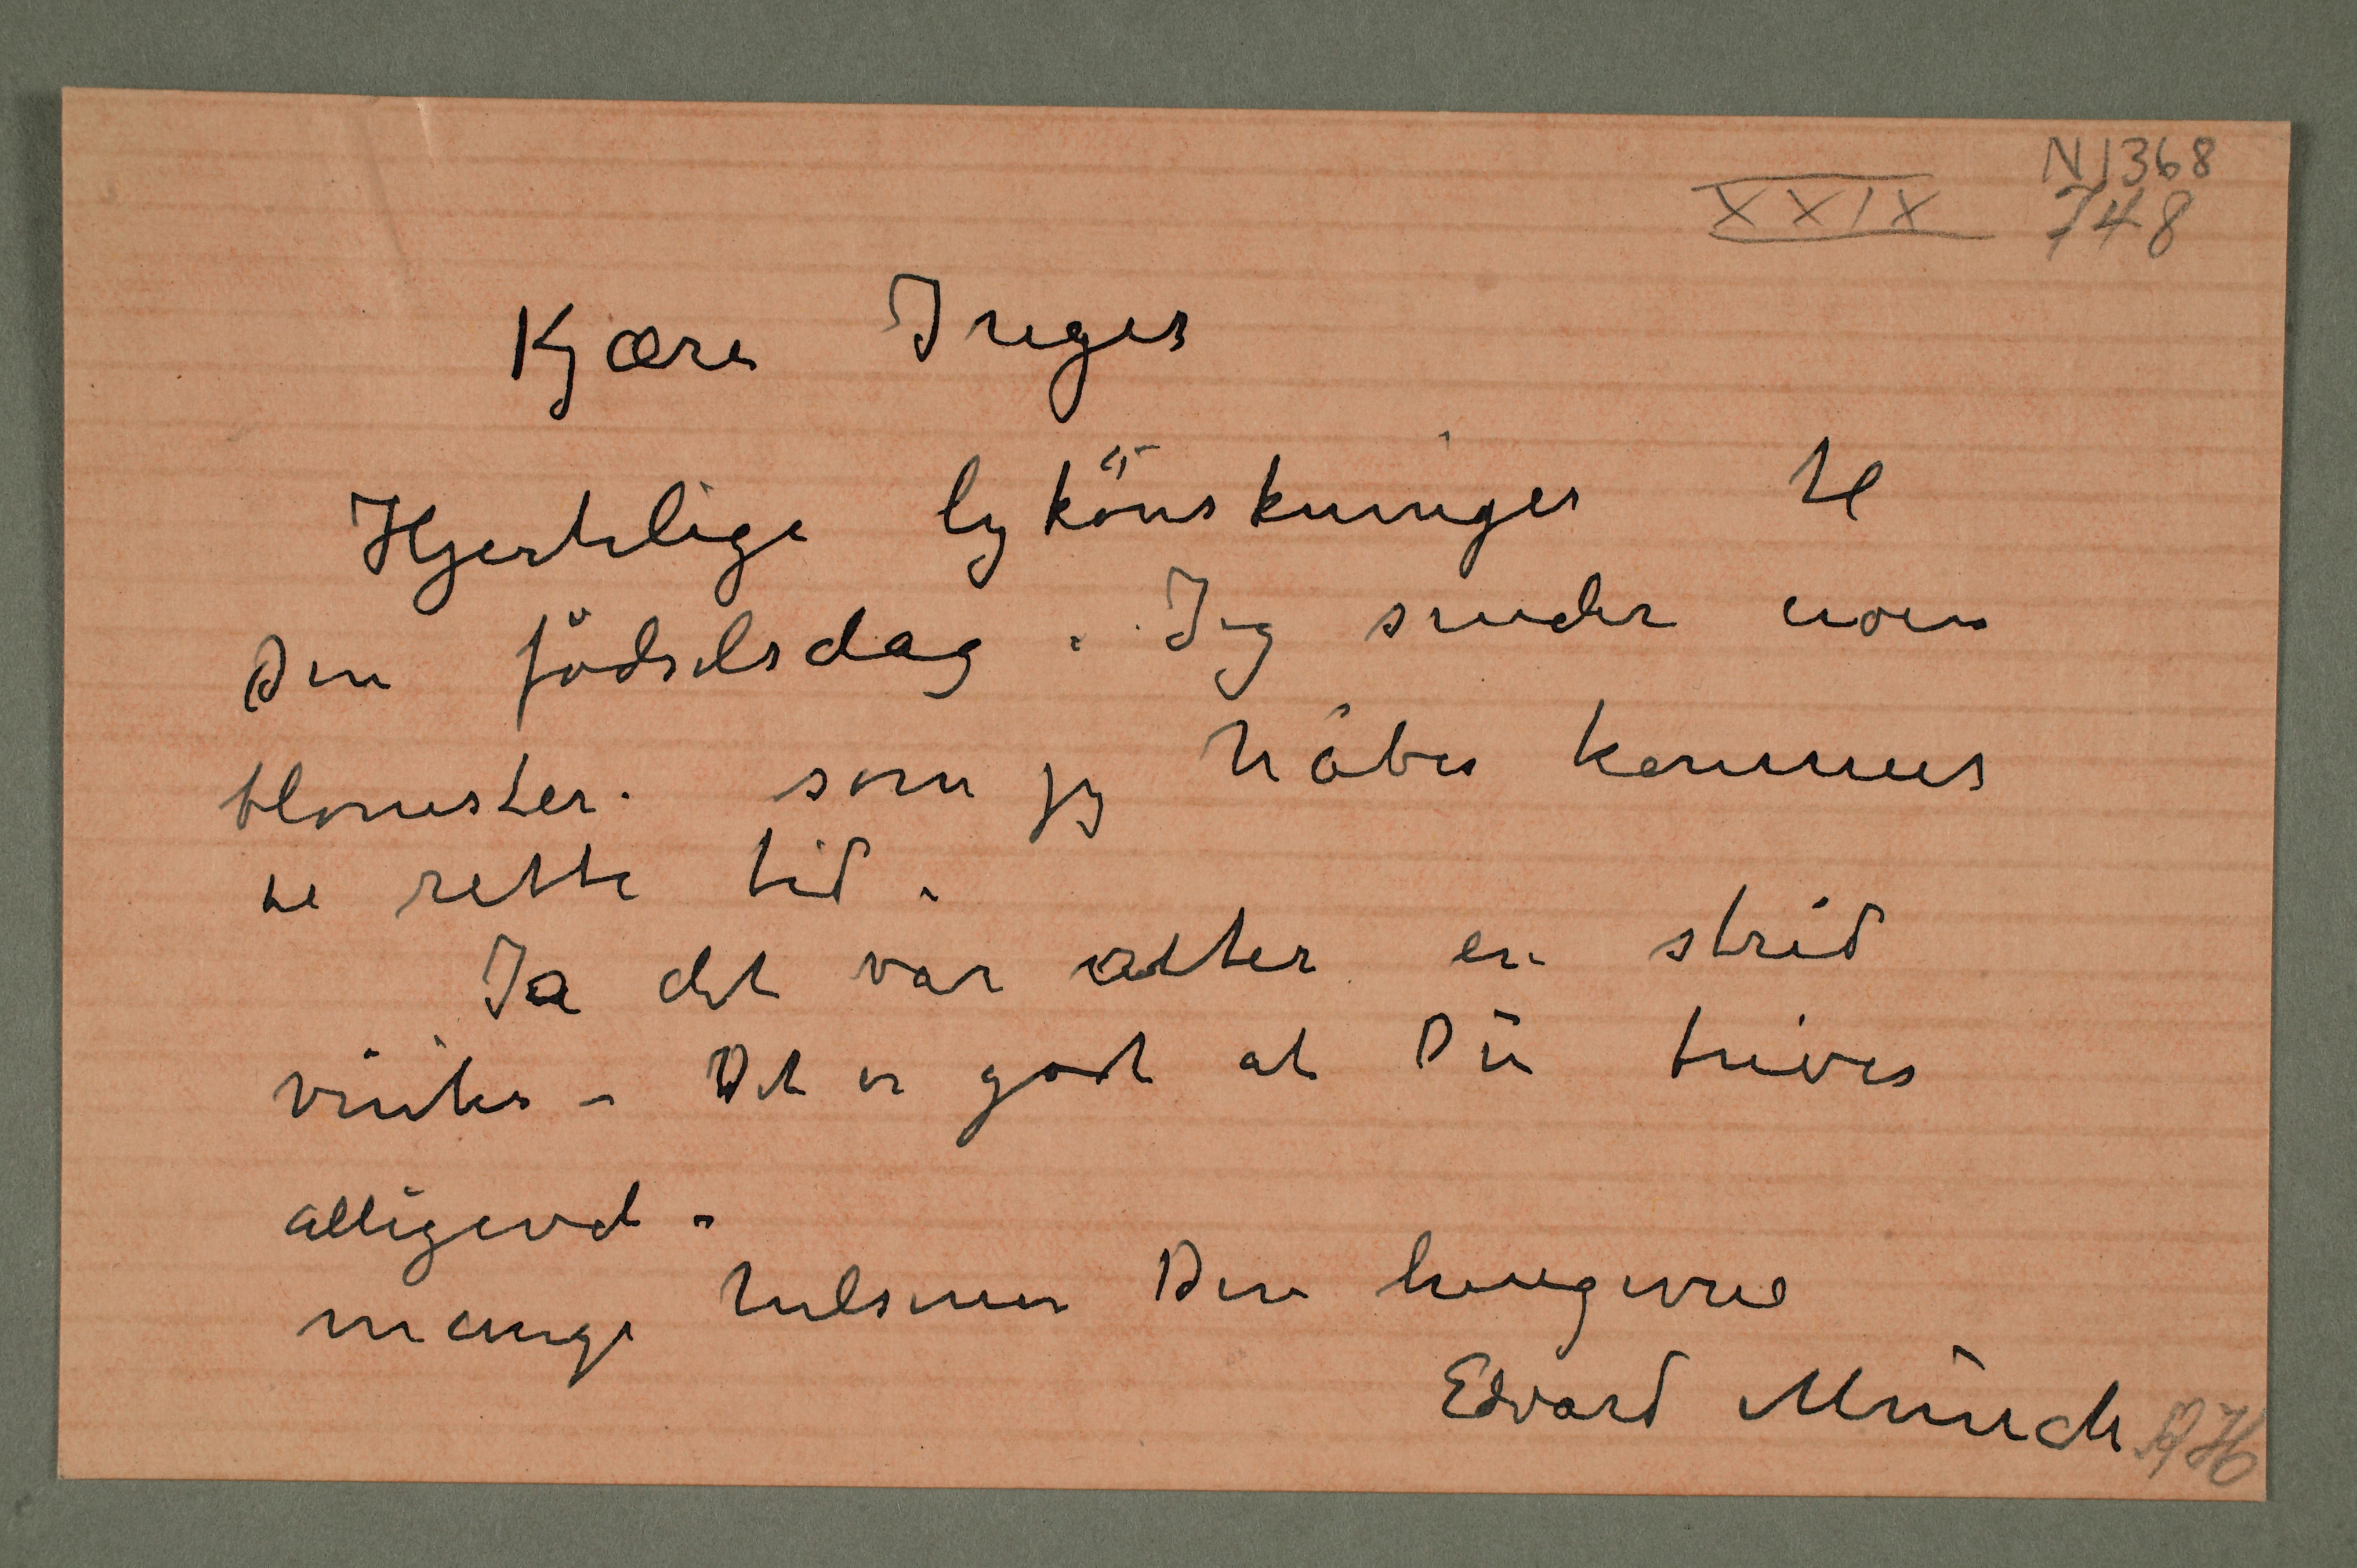 N 1368
XXIX 748
Kjære Inger
Hjertelige lykönskninger til
Din födselsdag. Jeg sender noen
blomster. som jeg håber kommer
til rette tid.
Ja det var atter en strid
vinter – Det er godt at Du trives
alligevel –
mange hilsener Din hengivne
Edvard Munch